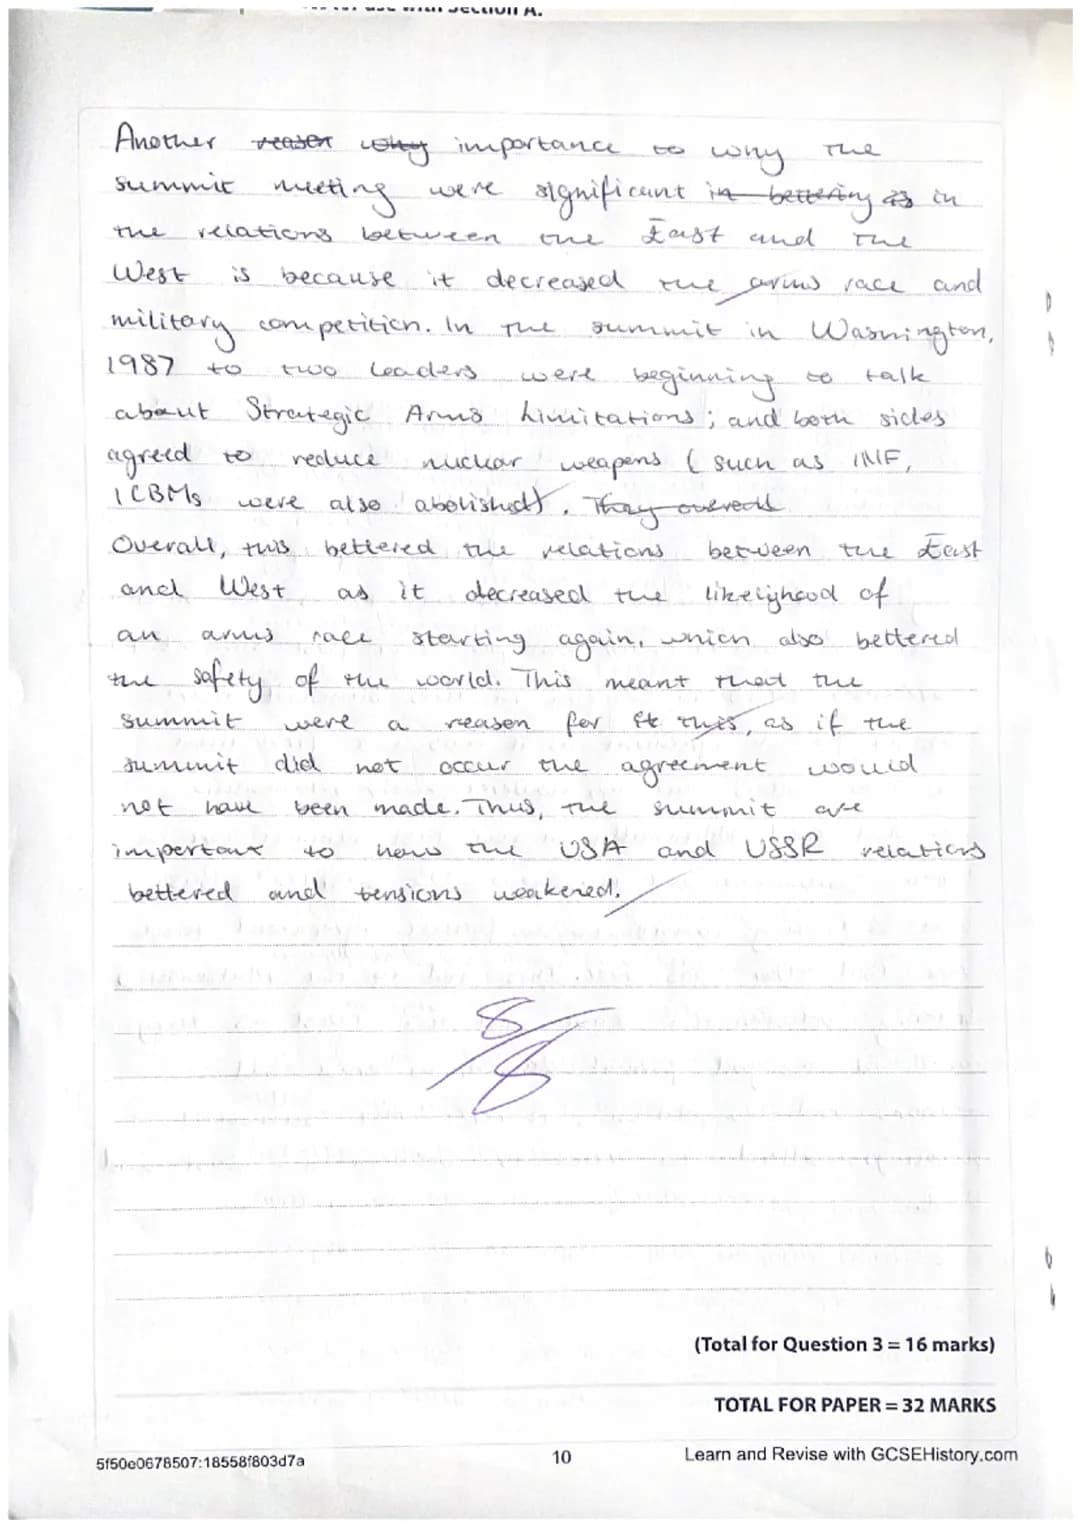 for use with Section A.
Another reason why importance to why the
summit meeting were significant in bettering as in
the relations between the East and the
West is because it decreased the arms race and
military competition. In the summit in Washington,
1987 to two leaders were beginning to talk
about Strategic Arms Limitations; and both sides
agreed to reduce nuclear weapons (such as INF,
ICBMs were also abolished). They overall
Overall, this bettered the relations between the East
and West as it decreased the likelyhood of
an arms race starting again, which also bettered
the safety of the world. This meant that the
summit were a reason for this, as if the
summit did not occur the agreement would
not have been made. Thus, the summit are
important to how the USA and USSR relations
bettered and tensions weakened.
8/8
(Total for Question 3 = 16 marks)
TOTAL FOR PAPER = 32 MARKS
5f50e0678507:18558f803d7a
10
Learn and Revise with GCSEHistory.com